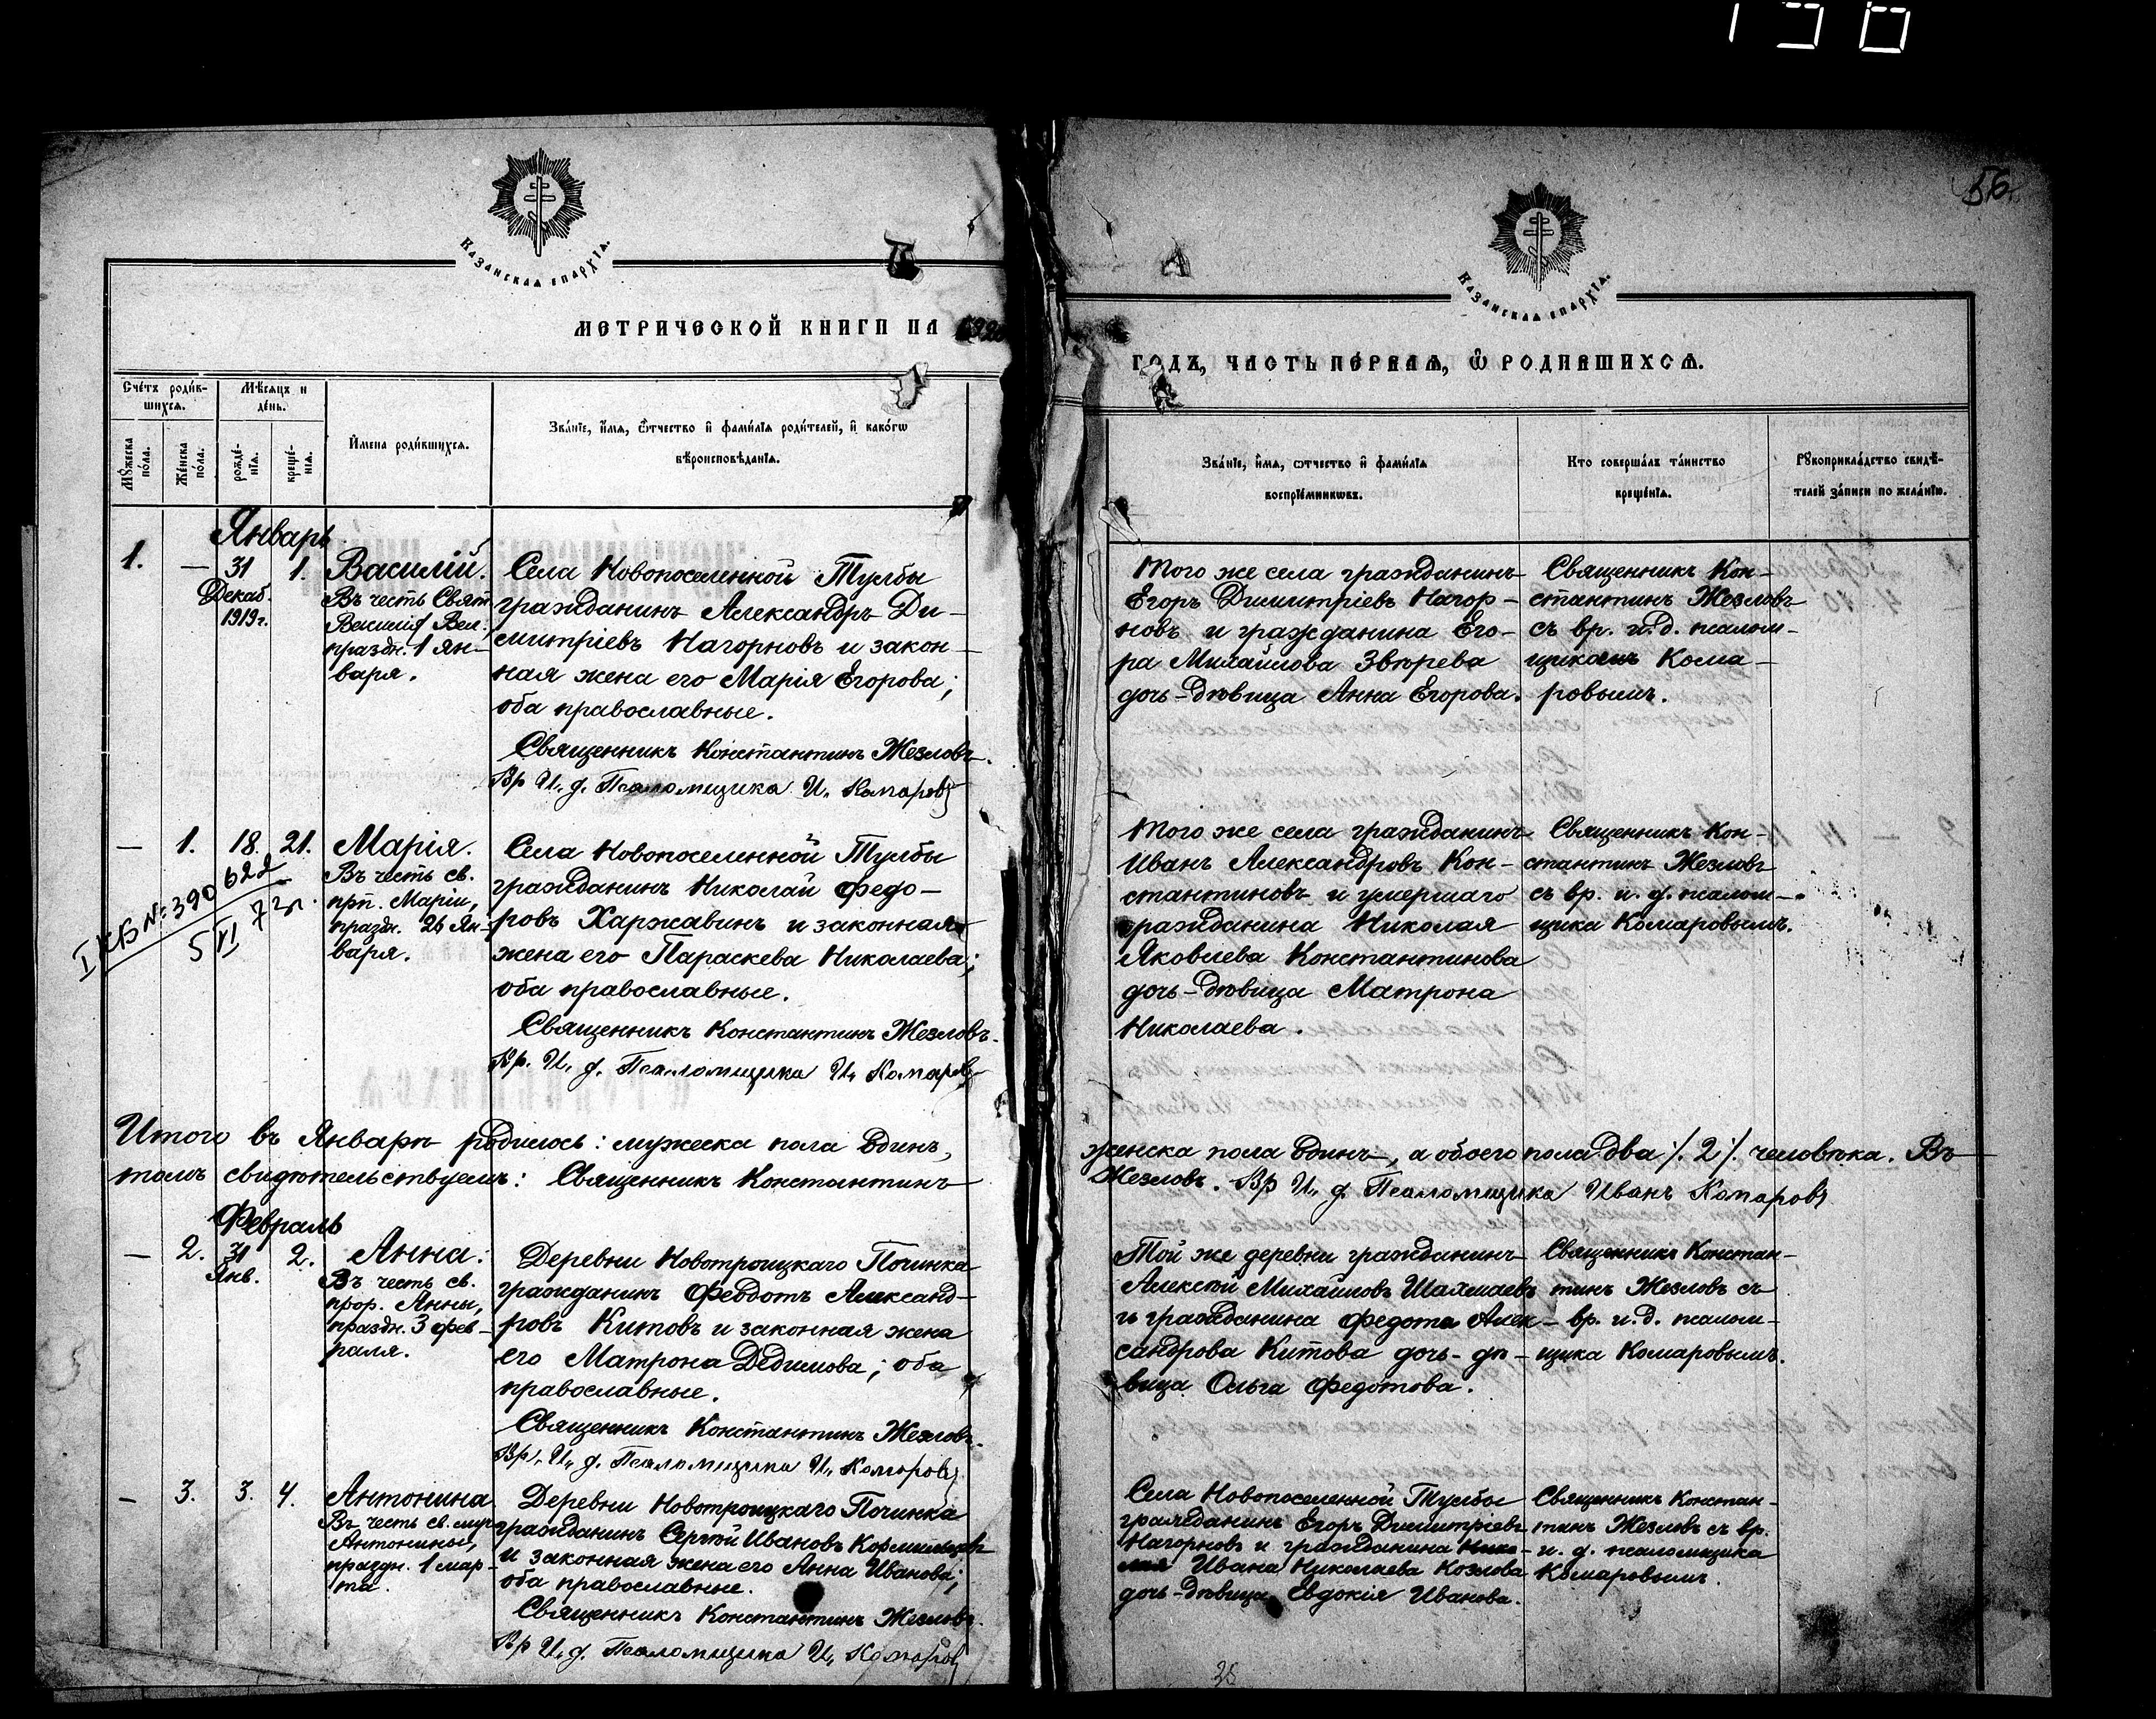 56.
Казанская епархія.
Казанская епархія.
МЕТРИЧЕСКОЙ КНИГИ НА 1920
ГОДЪ, ЧАСТЬ ПЕРВАЯ, Ѿ РОДИВШИХСЯ.
Счетъ родившихся.
Мѣсяцъ и день.
Мужеска пола.
Женска пола.
рожденія.
крещенія.
Имена родившихся.
Званіе, имя, ѿчество и фамилія родителей, и какогѡ
вѣроисповѣданія.
Званіе, имя, ѿчество и фамилія
воспріемникѡвъ.
Кто совершалъ таинство
крещенія.
Рукоприкладство свидѣ-
телей записи по желанію.
Январь
1. — 31 Декаб. 1919г. 1.
Василій.
Въ честь Свят.
Василія Вел.,
праздн. 1 Ян-
варя.
Села Новопоселенной Тулбы
гражданинъ Александръ Ди-
митріевъ Нагорновъ и закон-
ная жена его Марія Егорова;
оба православные.
Священникъ Константинъ Жезловъ.
Вр И. д. Псаломщика И. Комаровъ
Того же села гражданинъ
Егоръ Димитріевъ Нагор-
новъ и гражданина Его-
ра Михайлова Звѣрева
дочь-дѣвица Анна Егорова.
Священникъ Кон-
стантинъ Жезловъ
съ вр. и. д. псалом-
щикомъ Кома-
ровымъ.
— 1. 18. 21.
I КБ № 390 622
5 VI 72 г.
Марія.
Въ честь св.
прп. Маріи,
праздн. 26 Ян-
варя.
Села Новопоселенной Тулбы
гражданинъ Николай Федо-
ровъ Харжавинъ и законная
жена его Параскева Николаева;
оба православные.
Священникъ Константинъ Жезловъ.
Вр. И. д. Псаломщика И. Комаровъ
Того же села гражданинъ
Иванъ Александровъ Кон-
стантиновъ и умершаго
гражданина Николая
Яковлева Константинова
дочь-дѣвица Матрона
Николаева.
Священникъ Кон-
стантинъ Жезловъ
съ вр. и. д. псалом-
щика Комаровымъ.
Итого въ Январѣ родилось: мужеска пола одинъ,
женска пола одинъ, а обоего пола два /. 2 /. человѣка. Въ
томъ свидѣтельствуемъ: Священникъ Константинъ
Жезловъ. Вр И. д. Псаломщика Иванъ Комаровъ
Февраль
— 2. 31 Янв. 2.
Анна.
Въ честь св.
прор. Анны,
праздн. 3 фев-
раля.
Деревни Новотроицкаго Починка
гражданинъ Феодотъ Александ-
ровъ Китовъ и законная жена
его Матрона Дедимова; оба
православные.
Священникъ Константинъ Жезловъ.
Вр. И. д. Псаломщика И. Комаровъ
Той же деревни гражданинъ
Алексѣй Михайловъ Шахмаевъ
и гражданина Федота Алек-
сандрова Китова дочь-дѣ-
вица Ольга Федотова.
Священникъ Констан-
тинъ Жезловъ съ
вр. и. д. псалом-
щика Комаровымъ.
— 3. 3. 4.
Антонина.
Въ честь св. муч.
Антонины,
праздн. 1 мар-
та.
Деревни Новотроицкаго Починка
гражданинъ Сергѣй Ивановъ
и законная жена его Анна Иванова;
оба православные.
Священникъ Константинъ Жезловъ.
Вр И. д. Псаломщика И. Комаровъ
Села Новопоселенной Тулбы
гражданинъ Егоръ Димитріевъ
Нагорновъ и гражданина
Ивана Николаева Козлова
дочь-дѣвица Евдокія Иванова.
Священникъ Констан-
тинъ Жезловъ съ вр.
и. д. псаломщика
Комаровымъ.
28